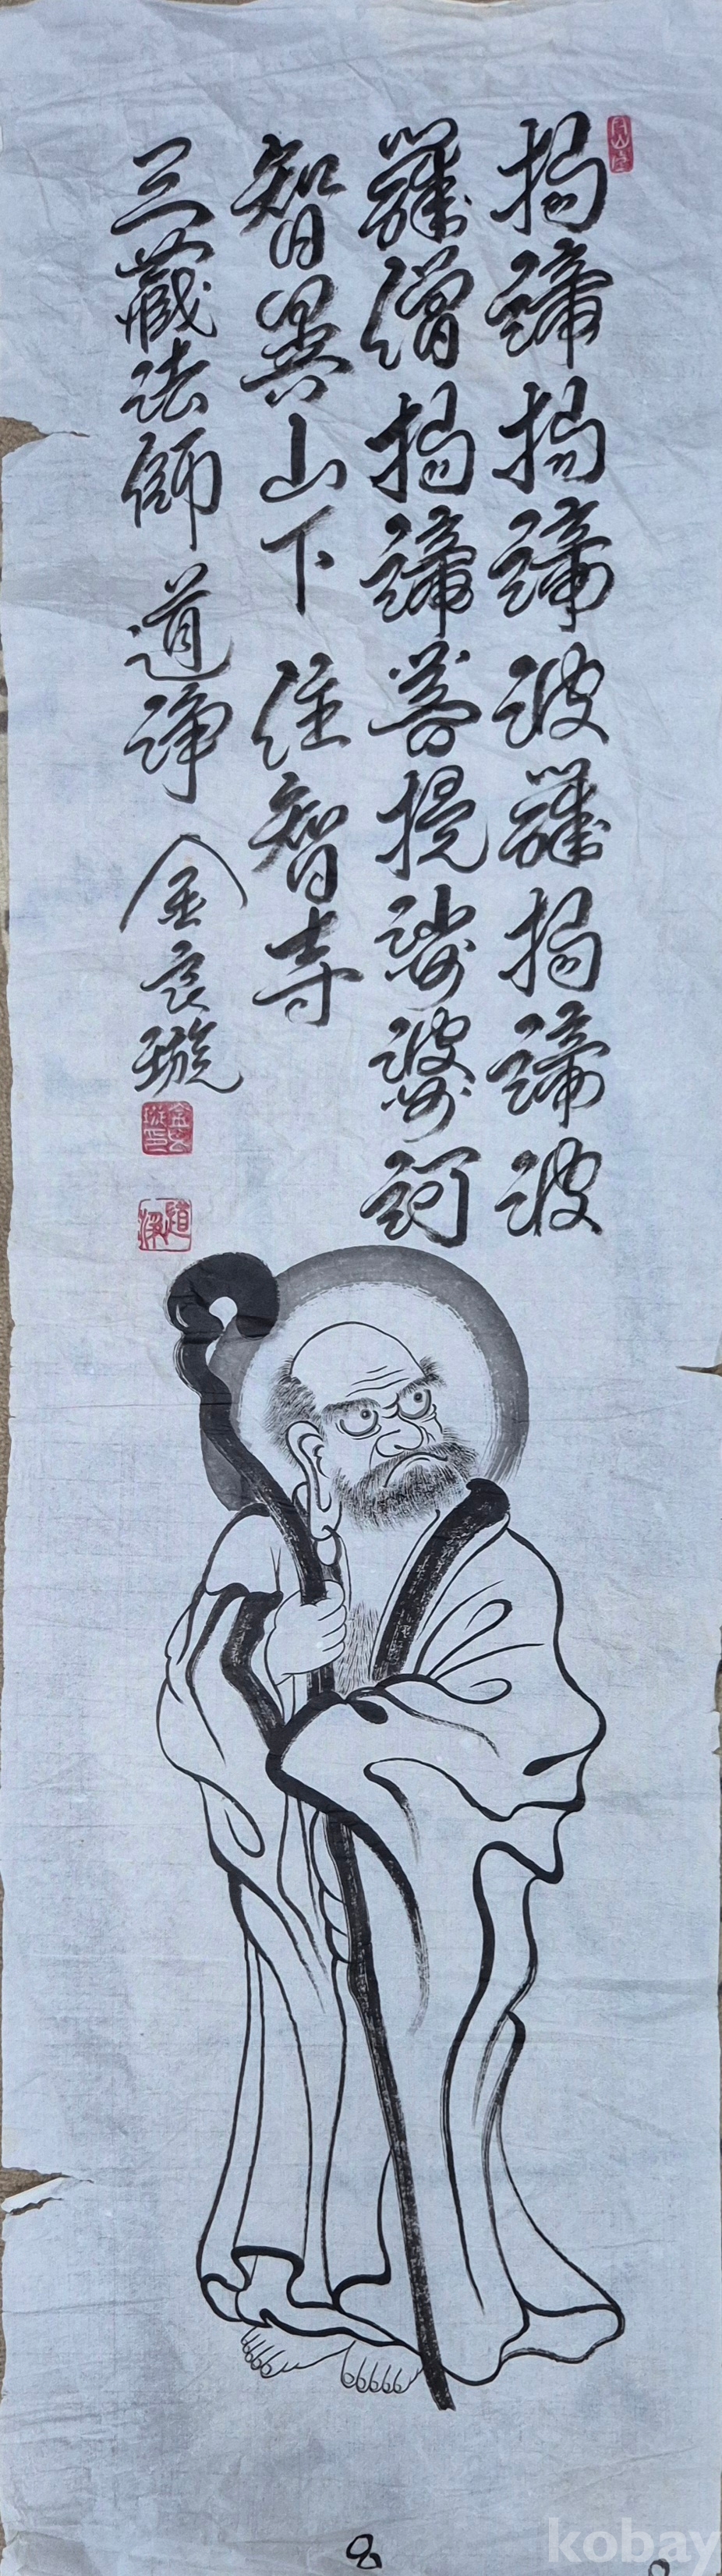 揭諦揭諦波羅揭諦波
羅僧揭諦菩提娑婆訶
智異山下 住智寺
三藏法師 道淨 金良璇
金良璇印
道淨
kobay